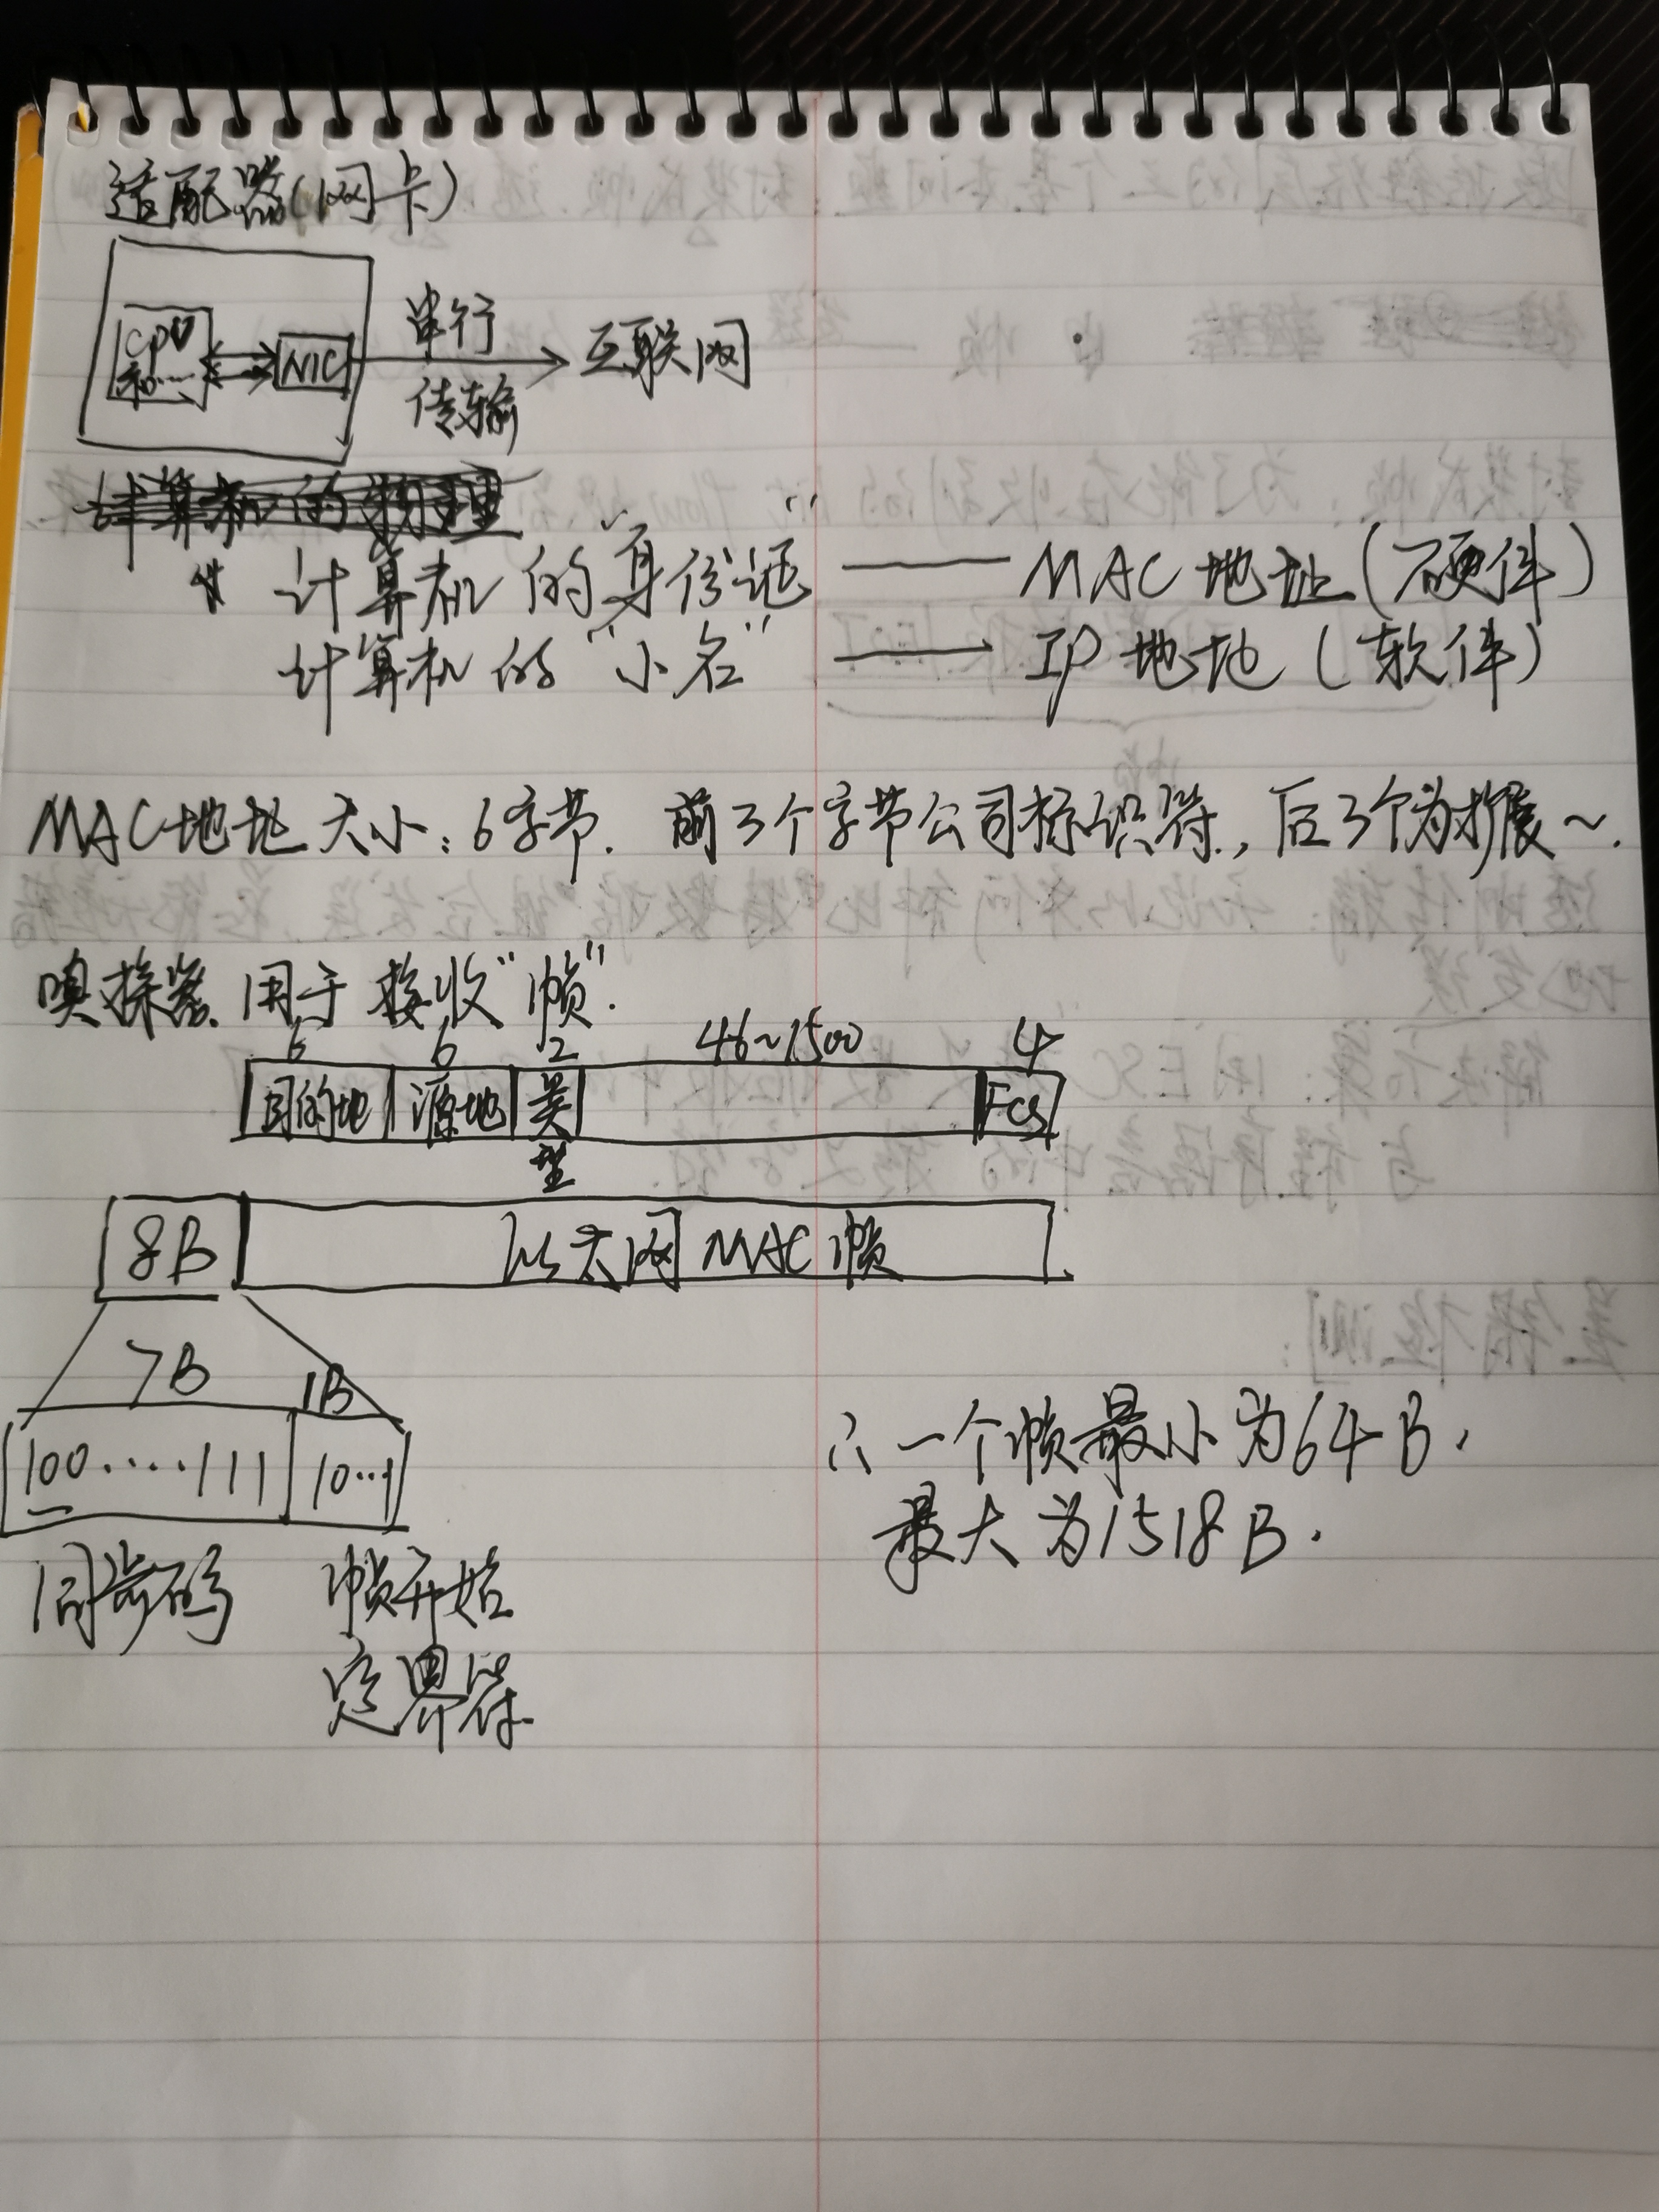 适配器(网卡)
CPU
和...
NIC
串行
传输
互联网
计算机的物理
计算机的"身份证" —— MAC地址(硬件)
计算机的"小名" —— IP地址(软件)
MAC地址大小:6字节. 前3个字节公司标识符,后3个为扩展~.
嗅探器 用于接收"帧".
6 6 2 46~1500 4
目的地 源地 类型 FCS
8B 以太网MAC帧
7B 1B
100.....111 10...1
∴一个帧最小为64B.
最大为1518B.
同步码 帧开始
定界符